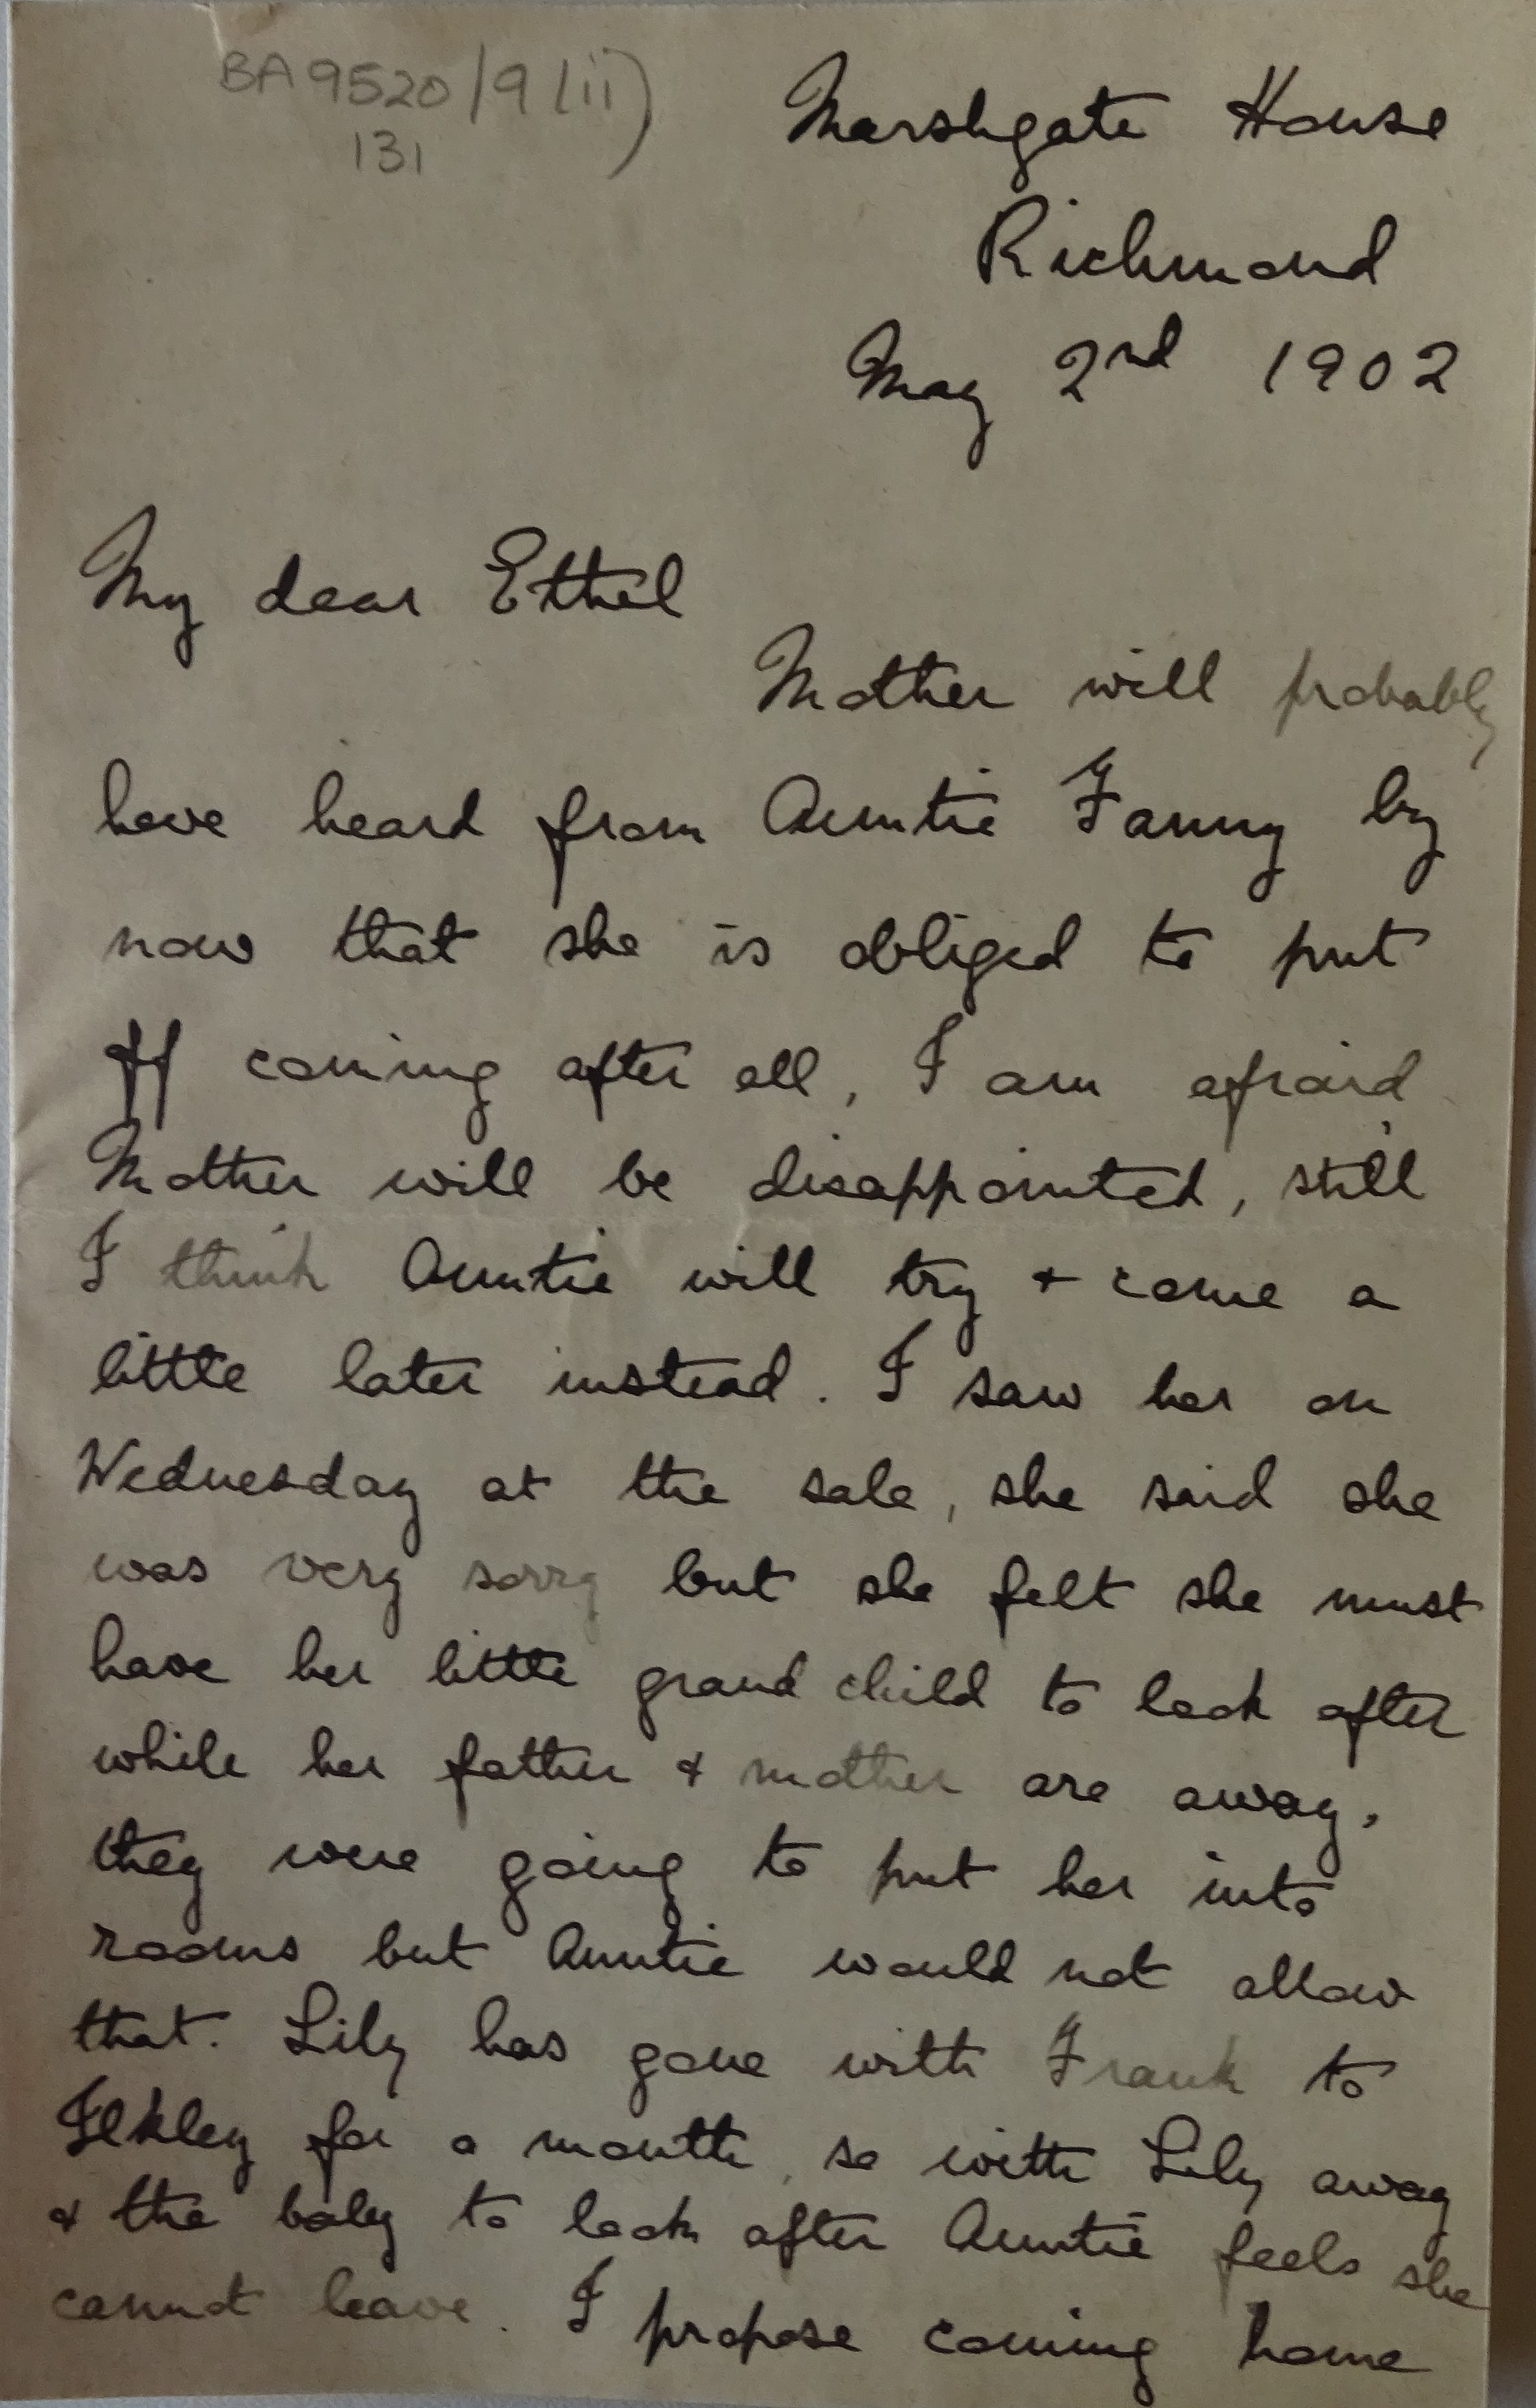 BA9520/9(ii)
131
Marshgate House
Richmond
May 2nd 1902
My dear Ethel
Mother will probably
have heard from Auntie Fanny by
now that she is obliged to put
off coming after all, I am afraid
Mother will be disappointed, still
I think Auntie will try & come a
little later instead. I saw her on
Wednesday at the sale, she said she
was very sorry but she felt she must
have her little grand child to look after
while her father & mother are away,
they were going to put her into
rooms but Auntie would not allow
that. Lily has gone with Frank to
Ilkley for a month, so with Lily away
& the baby to look after Auntie feels she
cannot leave. I propose coming home